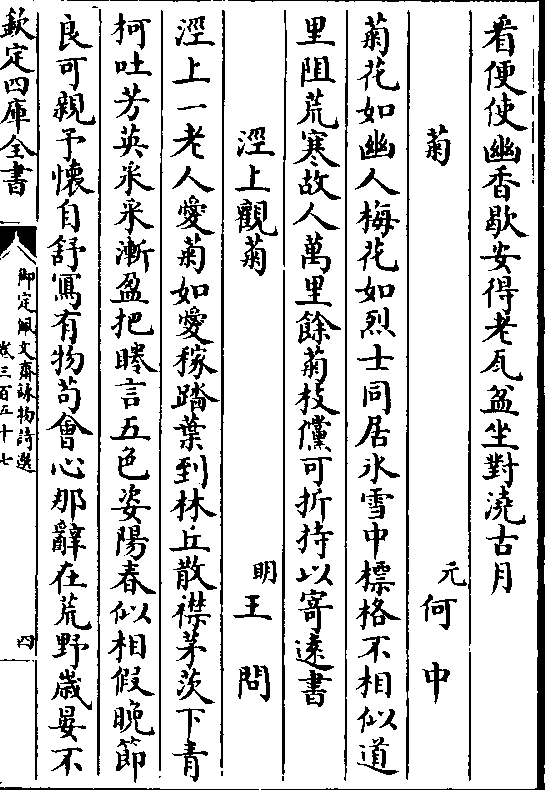 看便使幽香歇安得老瓦盆坐對澆古月
菊
元何中
菊花如幽人梅花如烈士同居氷雪中標格不相似道
里阻荒寒故人萬里餘菊枝儻可折持以寄遠書
涇上觀菊
明王問
涇上一老人愛菊如愛稼踏葉到林丘散襟茅茨下青
柯吐芳英采采漸盈把睠言五色姿陽春似相假晩節
良可親予懷自舒寫有物茍會心那辭在荒野歲晏不
欽定四庫全書
御定佩文齋詠物詩選
卷三百五十七
四